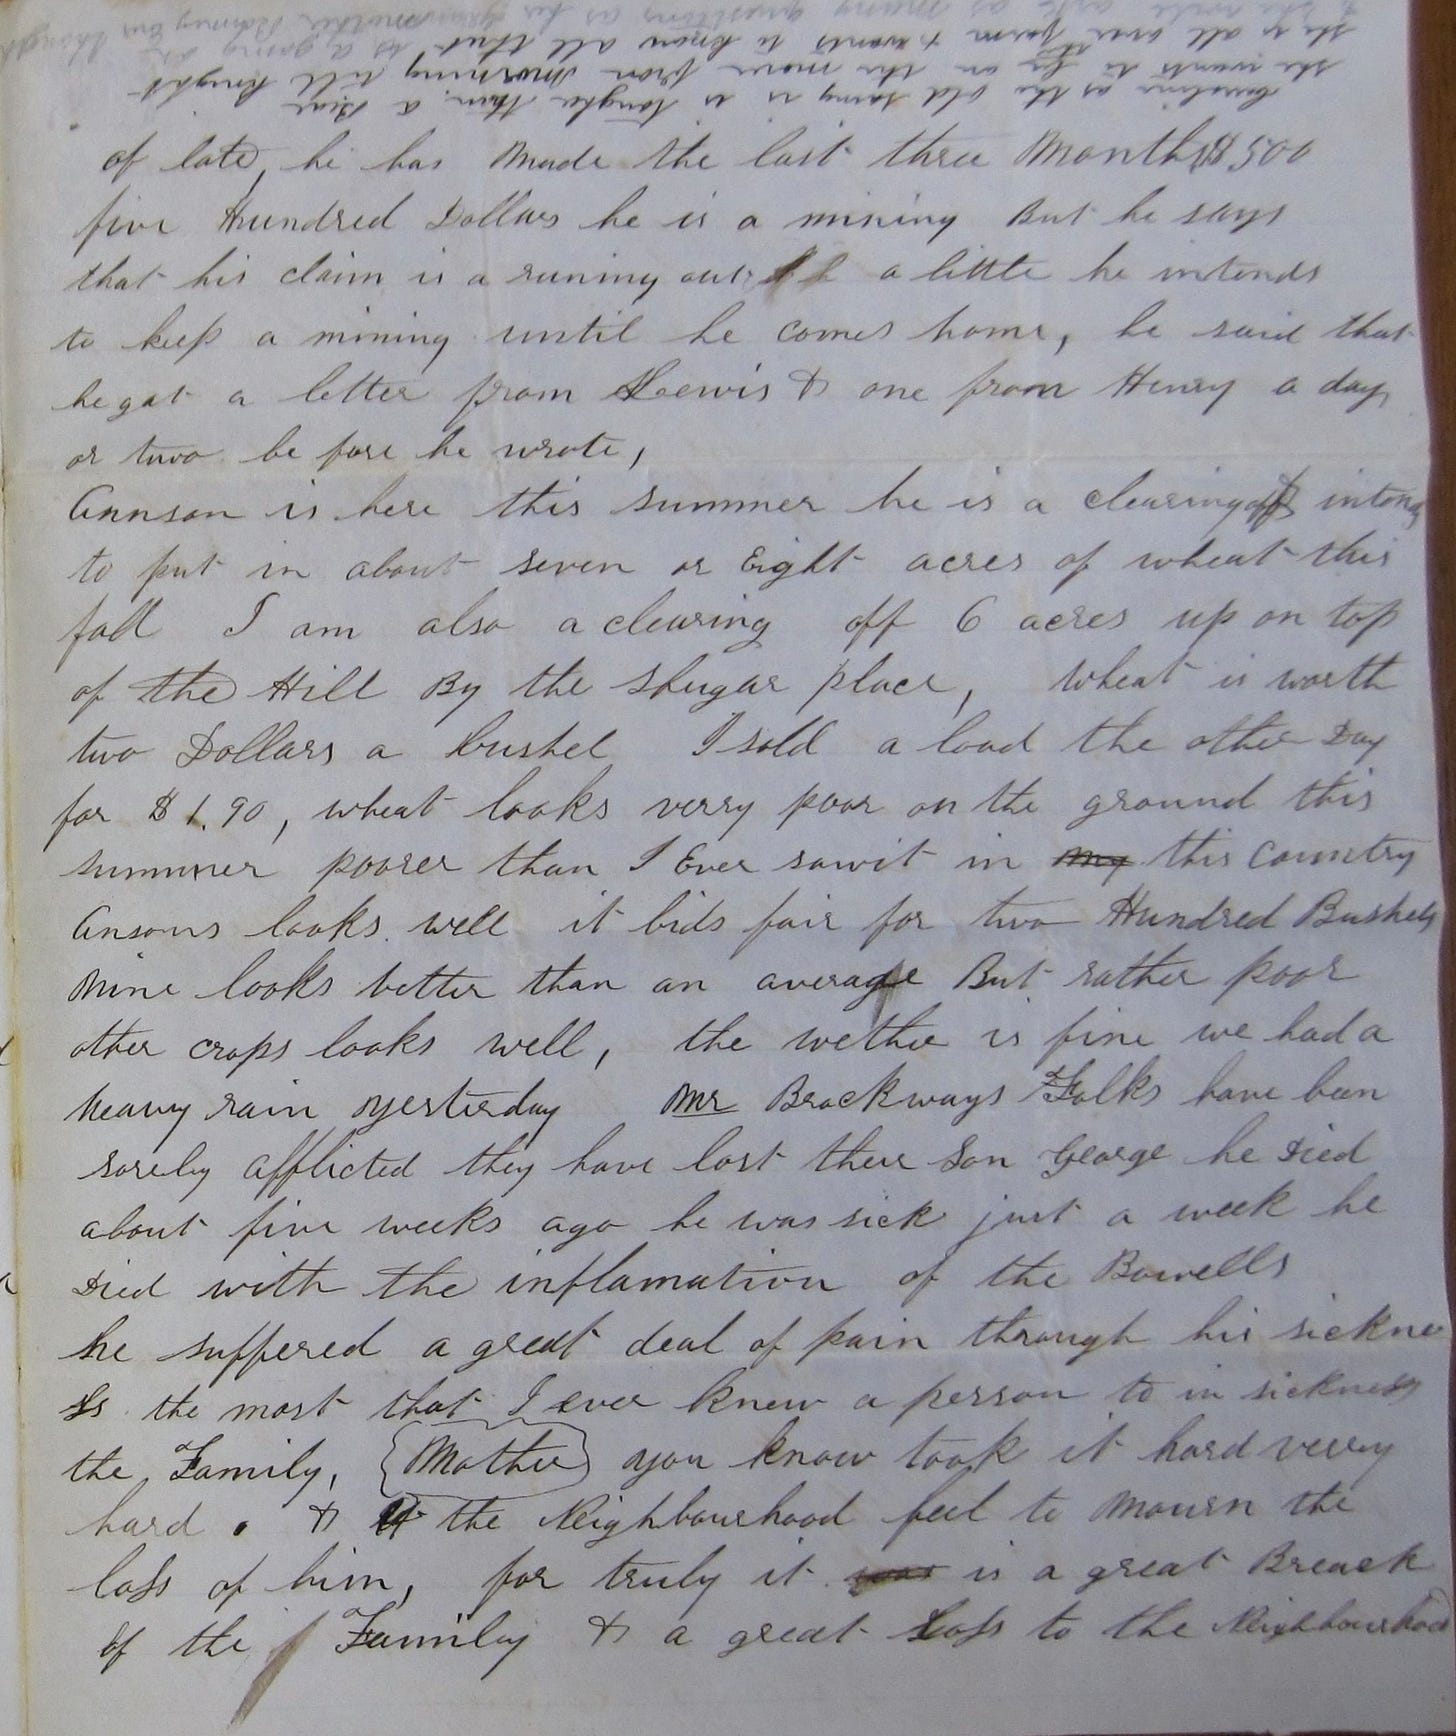 Caroline as the old saing is is tougher than a Bear
she wants to be on the move from morning till knight
she is all over the farm & wants to know all that is a going on
& she will ask as many questions as her grandmother
of late, he has made the last three Months $500
five Hundred Dollars he is a mining But he says
that his claim is a runing out a little he intends
to keep a mining until he comes home, he said that
he got a letter from Lewis & one from Henry a day
or two be fore he wrote,
Annson is here this summer he is a clearing off intends
to put in about seven or Eight acres of wheat this
fall I am also a clearing off 6 acres up on top
of the Hill By the Shugar place, wheat is worth
two Dollars a bushel I sold a load the other Day
for $1.90, wheat looks verry poor on the ground this
summer poorer than I Ever sawit in my this Country
Ansons looks well it bids fair for two Hundred Bushels
Mine looks better than an average But rather poor
other crops looks well, the wether is fine we had a
heavy rain yesterday Mr Brockways Folks have been
sorely afflicted they have lost their Son George he Died
about five weeks ago he was sick just a week he
Died with the inflamation of the Bowells
he suffered a great deal of pain through his sickne
ss the most that I ever knew a person to in sickness
the Family, {Mother} you know took it hard verry
hard. & the Neighbourhood feel to Mourn the
loss of him, for truly it was is a great Breack
of the Family & a great Loss to the Neighbourhood